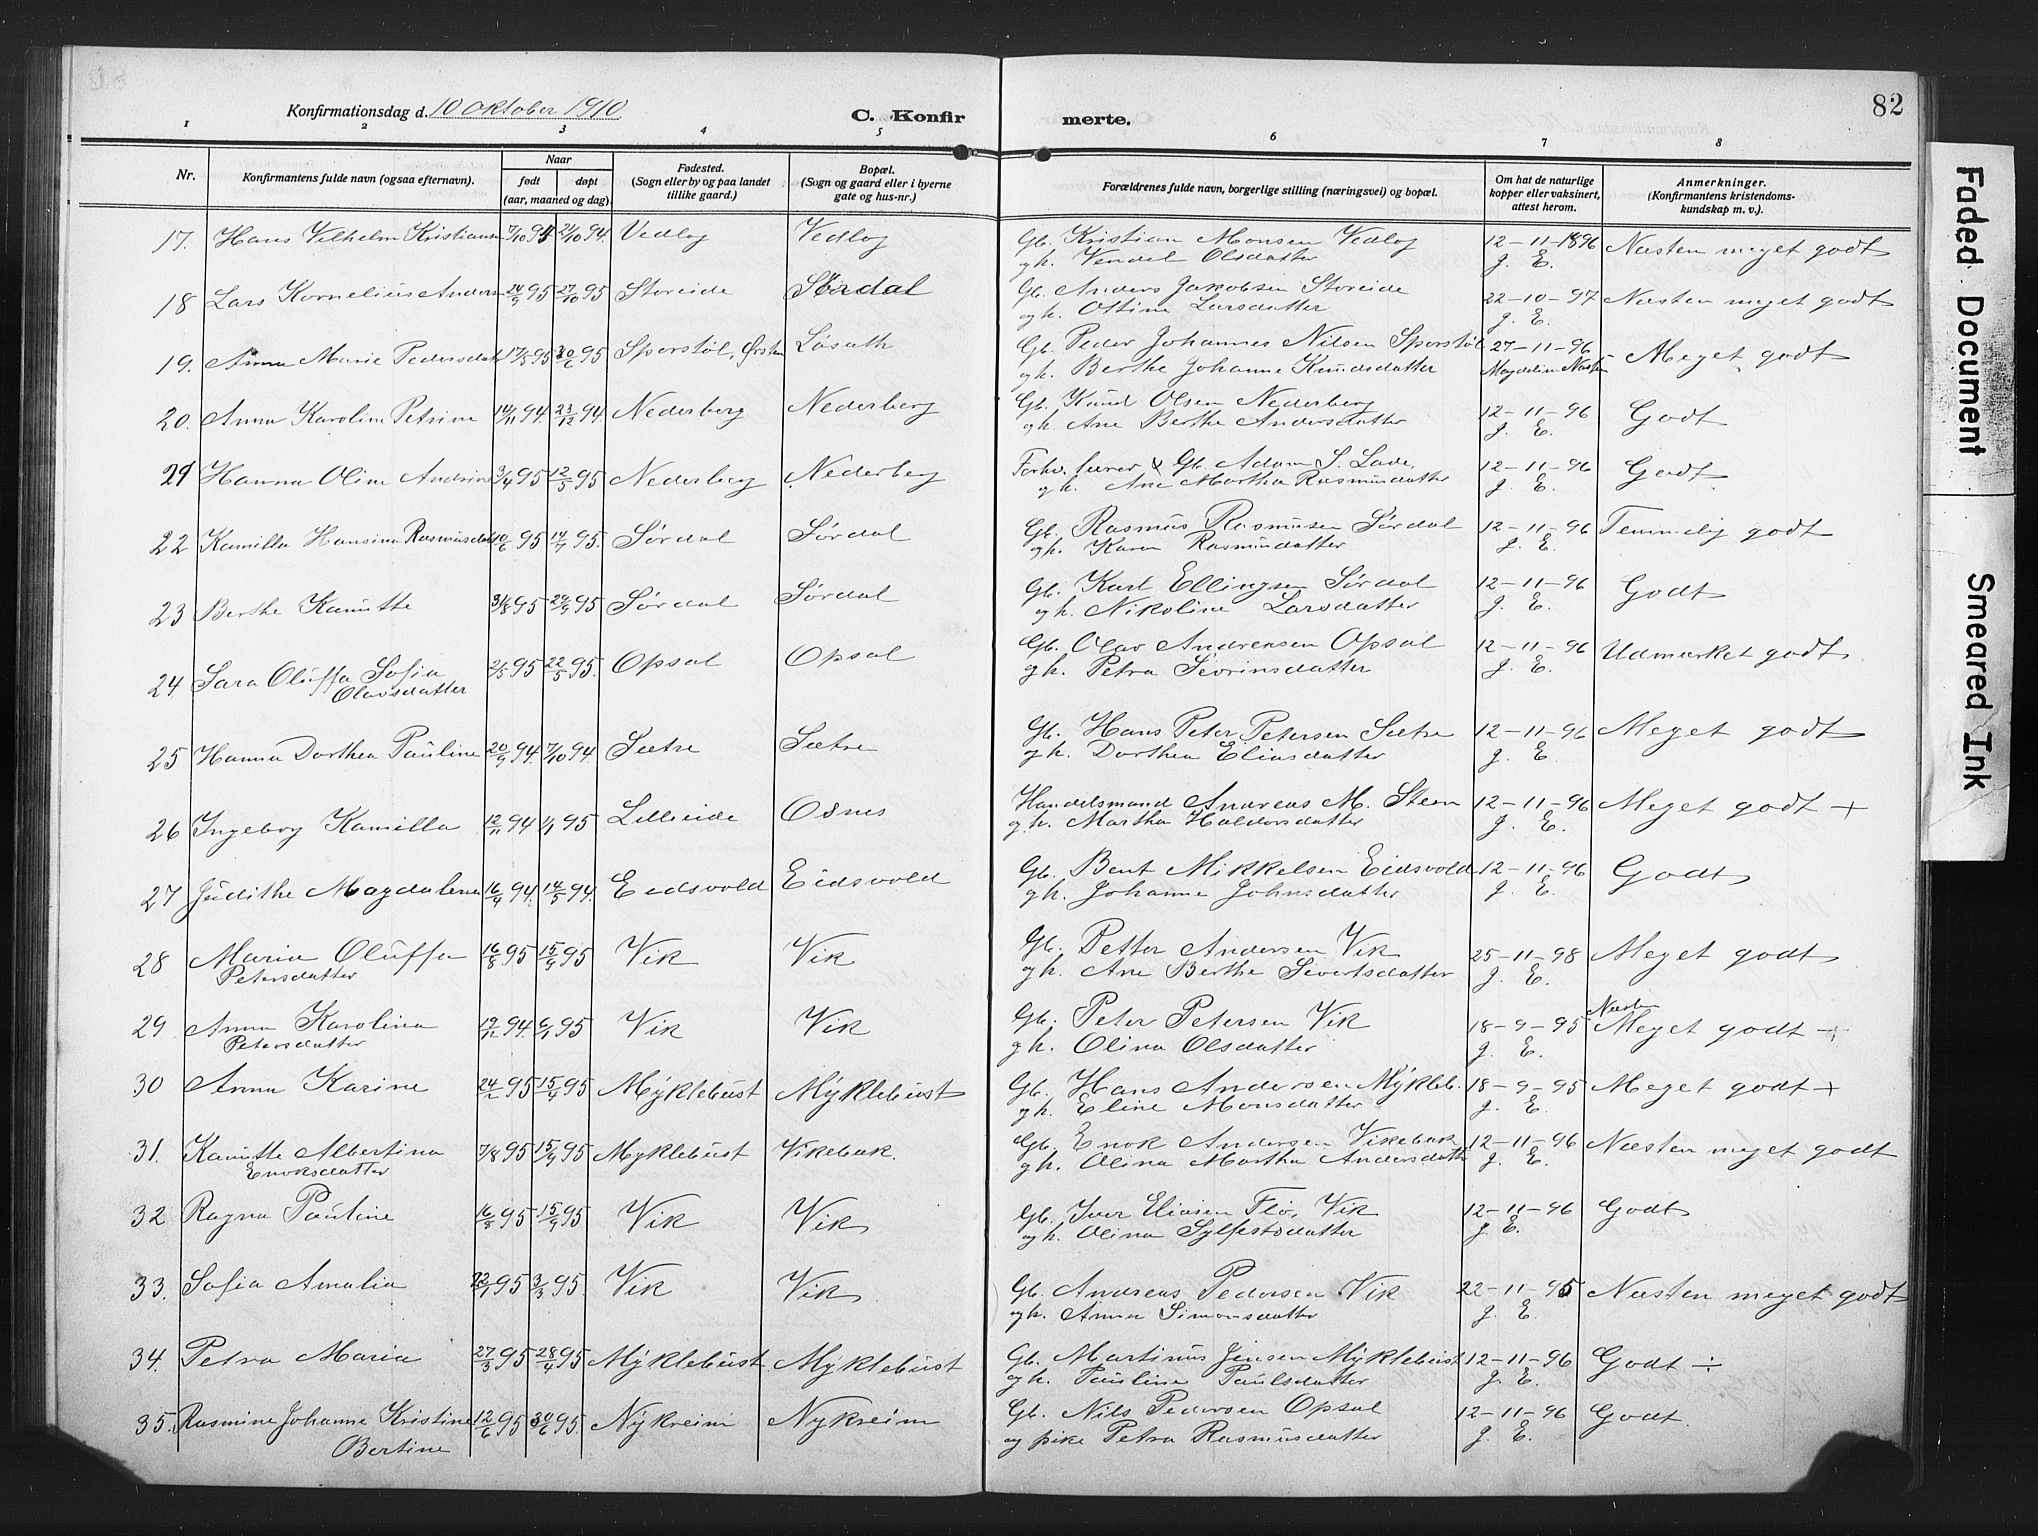 82
Konfirmationsdag d. 10 Oktober 1910
C. Konfirmerte.
1 2 3 4 5 6 7 8
Nr. Konfirmantens fulde navn (ogsaa efternavn). Naar født døpt (aar, maaned og dag). Fødested. (Sogn eller by og paa landet tillike gaard.) Bopæl. (Sogn og gaard eller i byerne gate og hus-nr.) Forældrenes fulde navn, borgerlige stilling (næringsvei) og bopæl. Om hat de naturlige kopper eller vaksinert, attest herom. Anmerkninger. (Konfirmantens kristendomskundskap m. v.).
17. Hans Vilhelm Kristiansen 7/10 94 21/10 94. Vedlog Vedlog Gb. Kristian Monsen Vedlog 12-11-1896 Næsten meget godt
og h. Vendel Olsdatter J. E.
18 Lars Kornelius Anders 24/9 95 27/10 95 Storeide Sørdal Gb. Anders Jakobsen Storeide 22-10-97 Næsten meget godt
og h. Ottine Larsdatter J. E.
19. Anna Marie Pedersdat 17/5 95 30/6 95 Sporstøl, Ørsten Løsæth Gb. Peder Johannes Nilsen Sporstøl 27-11-96 Meget godt
og h. Berthe Johanne Knudsdatter Magdelin
20. Anna Karoline Petrine 14/11 94. 23/12 94. Nederberg Nederberg Gb. Knud Olsen Nederberg 12-11-96 Godt
og h. Ane Berthe Andersdatter J. E.
21 Hanna Oline Andrine 3/4 95 12/5 95 Nederberg Nederberg Forhv. lærer & Gb. Adam S. Lade, 12-11-96 Godt
og h. Ane Martha Rasmusdatter J. E.
22 Kamilla Hansina Rasmusdat 10/6 95 14/7 95. Sørdal Sørdal Gb. Rasmus Rasmusen Sørdal 12-11-96 Temmelig godt
og h. Karen Rasmusdatter J. E.
23 Berthe Kamitte 31/8 95 29/9 95 Sørdal Sørdal Gb. Karl Ellingsen Sørdal 12-11-96 Godt
og h. Nikoline Larsdatter J. E.
24 Sara Oluffa Sofia 2/5 95 22/5 95. Opsal Opsal Gb. Olav Andreasen Opsal 12-11-96 Udmærket godt
Olavsdatter og h. Petra Sevrinsdatter J. E.
25 Hanna Dorthea Pauline 20/9 94. 7/10 94 Sætre Sætre Gb. Hans Peter Petersen Sætre 12-11-96 Meget godt
og h. Dorthea Eliasdatter J. E.
26 Ingeborg Kamilla 12/11 94 1/1 95 Lilleeide Osnes Handelsmand Andreas M. Steen 12-11-96 Meget godt +
og h. Martha Haldorsdatter J. E.
27 Judithe Magdalena 16/4 94. 14/5 94. Eidsvold Eidsvold Gb. Bent Mikkelsen Eidsvold 12-11-96 Godt
og h. Johanne Johnsdatter J. E.
28 Maria Oluffa 16/8 95 15/9 95 Vik Vik Gb. Petter Andersen Vik 25-11-98 Meget godt
Petersdatter og h. Ane Berthe Sivertsdatter J. E.
29 Anna Karolina 19/12 94. 6/1 95 Vik Vik Gb. Peter Petersen Vik 18-9-95 Næsten Meget godt +
Petersdatter og h. Olina Olsdatter J. E.
30 Anna Karine 24/2 95 15/4 95 Myklebust Myklebust Gb. Hans Andersen Mykleb. 18-9-95 Meget godt +
og h. Eline Monsdatter J. E.
31. Kamitte Albertina 7/8 95 15/9 95 Myklebust Vikebak. Gb. Enok Andersen Vikebak 12-11-96 Næsten meget godt
Enoksdatter og h. Olina Martha Andersdatt J. E.
32 Ragna Pauline 16/8 95 15/9 95 Vik Vik Gb. Iver Eliasen Flø, Vik 12-11-96 Godt
og h. Olina Sylfestsdatter J. E.
33. Sofia Amalia 22/1 95 3/3 95. Vik Vik Gb. Andreas Pedersen Vik 22-11-95 Næsten meget godt
og h. Anna Simonsdatter J. E.
34. Petra Maria 27/3 95 28/4 95 Myklebust Myklebust Gb. Martinus Jensen Myklebust 12-11-96 Godt ÷
og h. Pauline Paulsdatter J. E.
35. Rasmine Johanne Kristine 12/6 95 30/6 95. Nykreim Nykreim Gb. Nils Pedersen Opsal 12-11-96 Godt.
Bertine og pike Petra Rasmusdatter J. E.
Faded Document
Smeared Ink